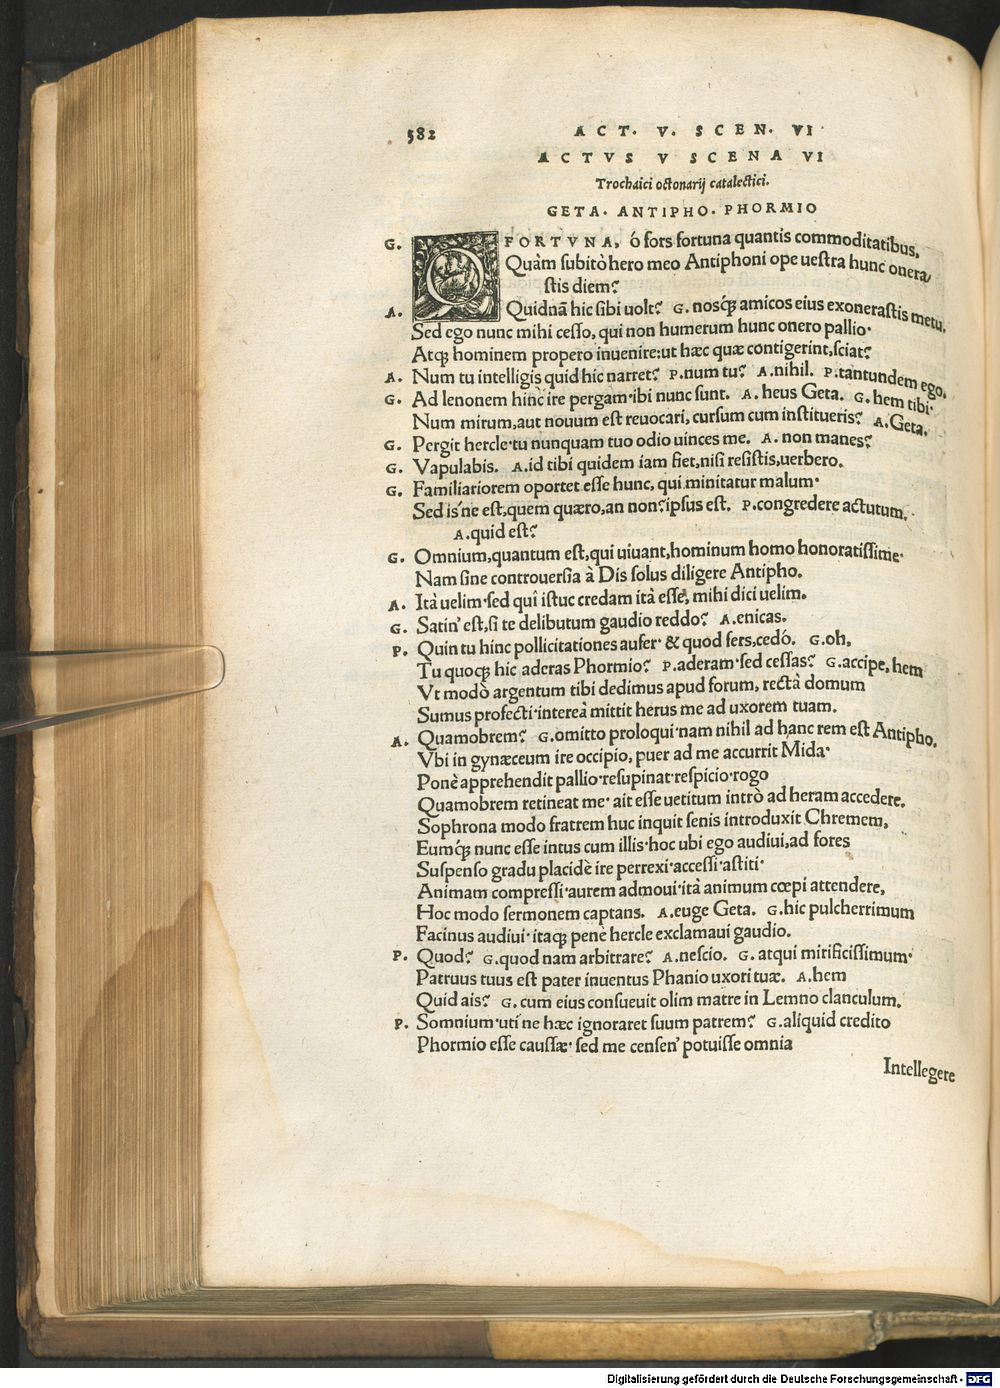 582 ACT. V. SCEN. VI
ACTVS V SCENA VI
Trochaici octonarij catalectici.
GETA. ANTIPHO. PHORMIO
G. O FORTVNA, ó fors fortuna quantis commoditatibus,
Quàm subitò hero meo Antiphoni ope uestra hunc onera/
stis diem?
A. Quidnā hic sibi uolt? G. nosq́ꝫ amicos eius exonerastis metu.
Sed ego nunc mihi cesso, qui non humerum hunc onero pallio·
Atqꝫ hominem propero inuenire:ut hæc quæ contigerint,sciat?
A. Num tu intelligis quid hic narret? P.num tu? A.nihil. P.tantundem ego.
G. Ad lenonem hinc ire pergam·ibi nunc sunt. A. heus Geta. G. hem tibi·
Num mirum,aut nouum est reuocari, cursum cum institueris? A.Geta.
G. Pergit hercle·tu nunquam tuo odio uinces me. A. non manes?
G. Vapulabis. A.id tibi quidem iam fiet,nisi resistis,uerbero.
G. Familiariorem oportet esse hunc, qui minitatur malum·
Sed is'ne est,quem quæro,an non?ipsus est. P.congredere actutum.
A.quid est?
G. Omnium,quantum est,qui uiuant,hominum homo honoratissime·
Nam sine controuersia à Dis solus diligere Antipho.
A. Ità uelim·sed quî istuc credam ità esse, mihi dici uelim.
G. Satin' est,si te delibutum gaudio reddo? A.enicas.
P. Quin tu hinc pollicitationes aufer· & quod fers,cedó. G.oh,
Tu quoqꝫ hic aderas Phormio? P.aderam·sed cessas? G.accipe,hem
Vt modò argentum tibi dedimus apud forum, rectà domum
Sumus profecti·intereà mittit herus me ad uxorem tuam.
A. Quamobrem? G.omitto proloqui·nam nihil ad hanc rem est Antipho.
Vbi in gynæceum ire occipio, puer ad me accurrit Mida·
Ponè apprehendit pallio·resupinat·respicio·rogo
Quamobrem retineat me· ait esse uetitum intrò ad heram accedere.
Sophrona modo fratrem huc inquit senis introduxit Chremem,
Eumq́ꝫ nunc esse intus cum illis·hoc ubi ego audiui,ad fores
Suspenso gradu placidè ire perrexi·accessi·astiti·
Animam compressi·aurem admoui·ità animum cœpi attendere,
Hoc modo sermonem captans. A.euge Geta. G.hic pulcherrimum
Facinus audiui·itaqꝫ penè hercle exclamaui gaudio.
P. Quod? G.quod nam arbitrare? A.nescio. G. atqui mirificissimum·
Patruus tuus est pater inuentus Phanio uxori tuæ. A.hem
Quid ais? G. cum eius consueuit olim matre in Lemno clanculum.
P. Somnium·uti'ne hæc ignoraret suum patrem? G.aliquid credito
Phormio esse caussæ· sed me censen' potuisse omnia
Intellegere
Digitalisierung gefördert durch die Deutsche Forschungsgemeinschaft - DFG